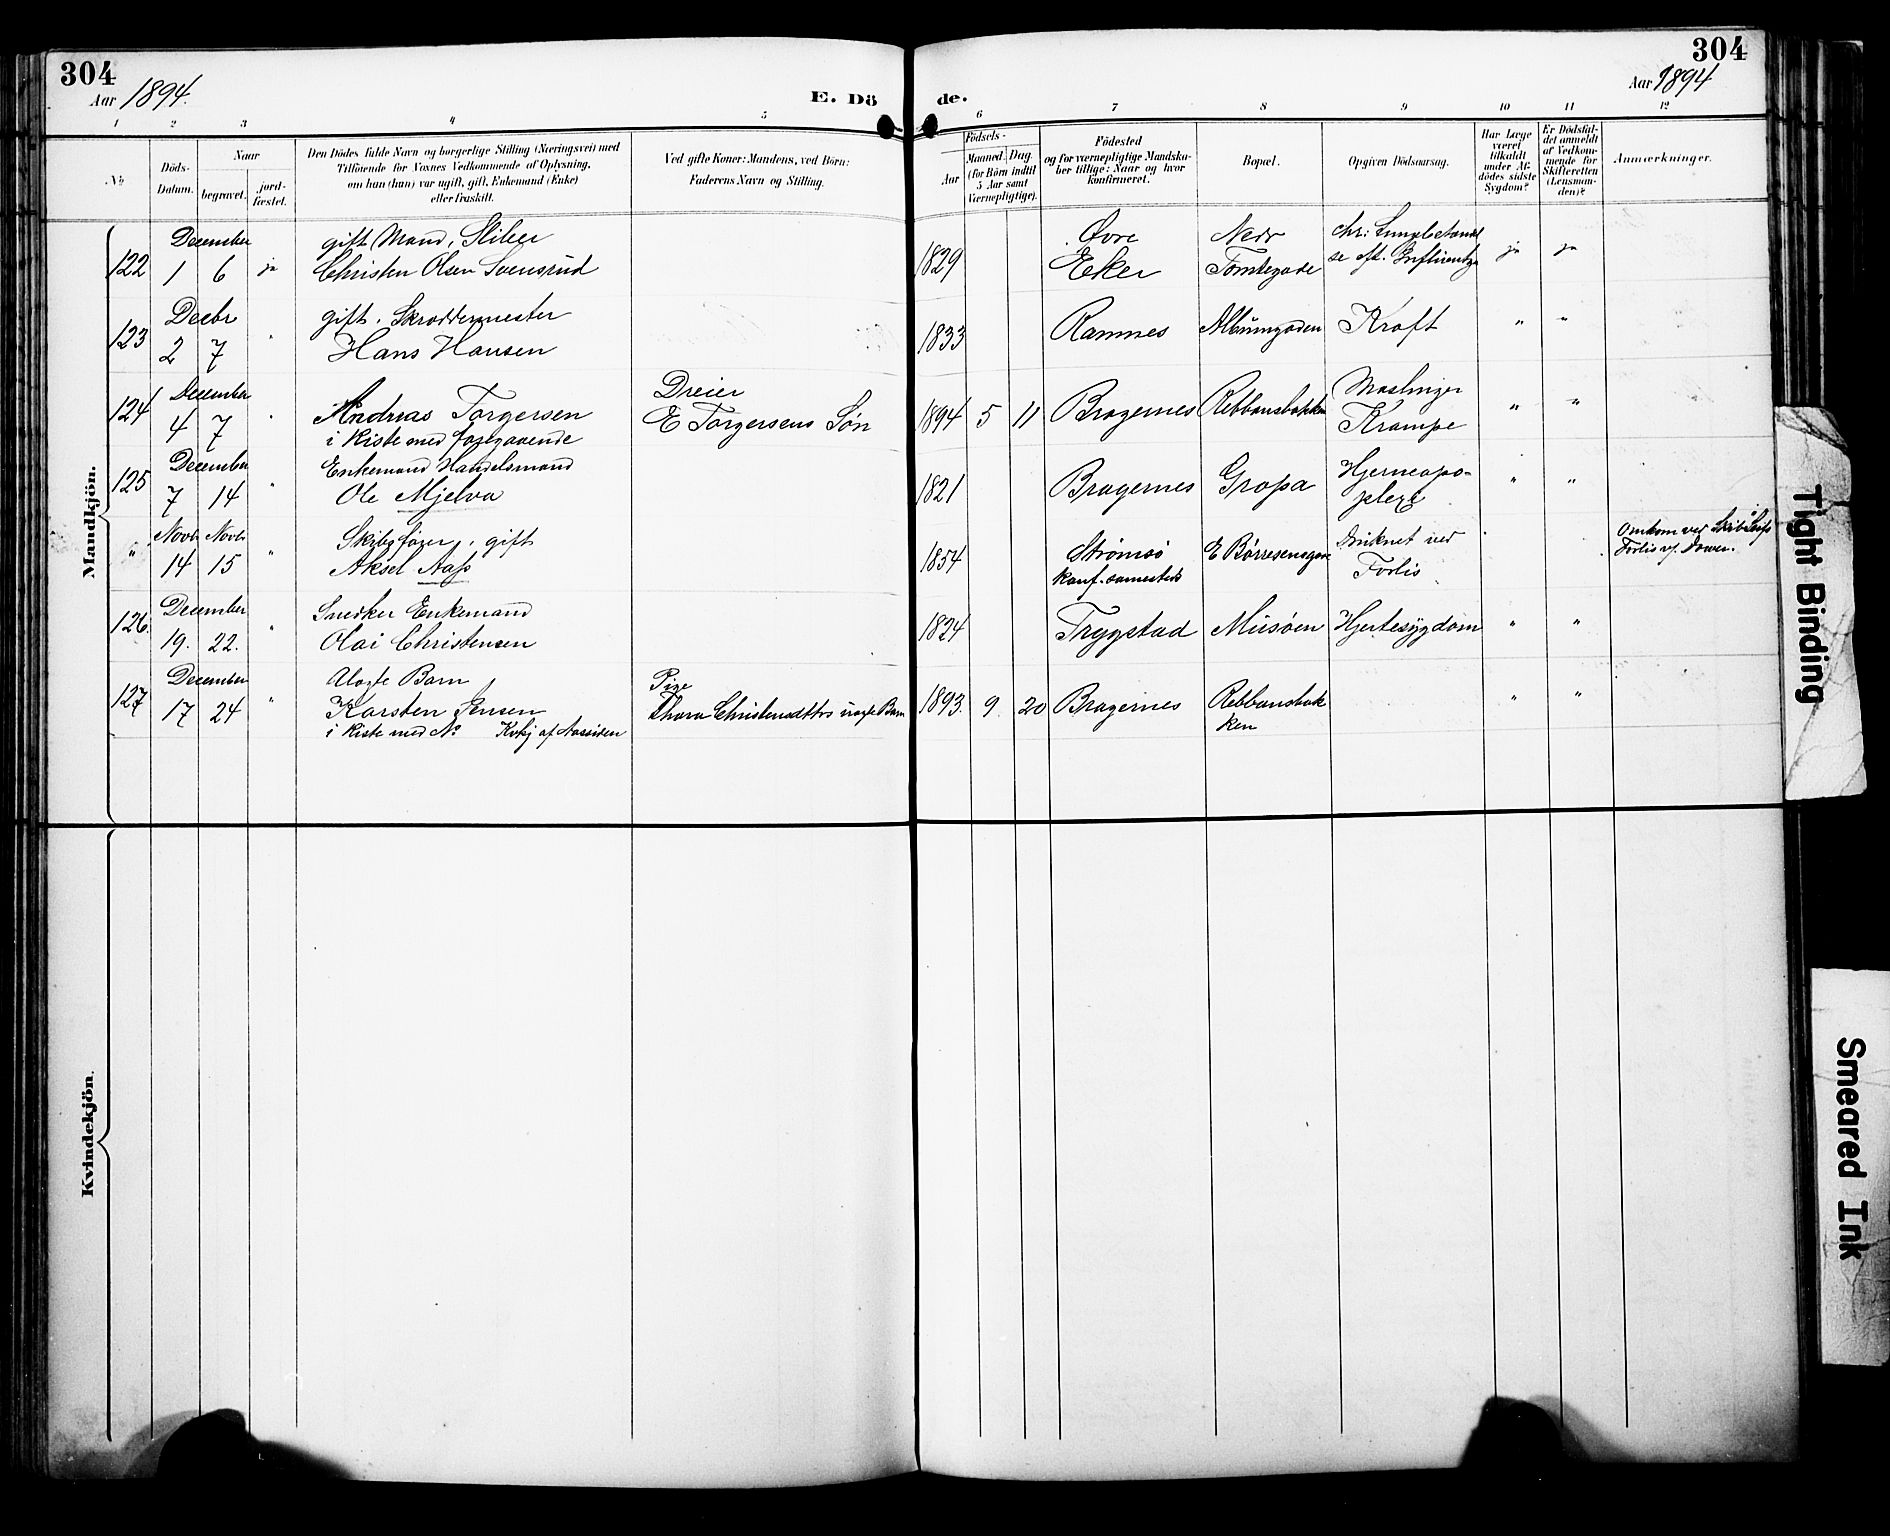 304
Aar 1894.
E. Dö
de.
304
Aar 1894
1 2 3 4 5 6 7 8 9 10 11 12
No
Döds-
Datum.
Naar
begravet.
jord-
fæstet.
Den Dödes fulde Navn og borgerlige Stilling (Næringsvei) med
Tilföiende for Voxnes Vedkommende af Oplysning,
om han (hun) var ugift, gift, Enkemand (Enke)
eller fraskilt.
Ved gifte Koner: Mandens, ved Börn:
Faderens Navn og Stilling.
Födsels-
Aar
Maaned.
Dag.
(for Börn indtil
5 Aar samt
Værnepligtige).
Födested
og for værnepligtige Mandska-
ber tillige: Naar og hvor
konfirmeret.
Bopæl.
Opgiven Dödsaarsag.
Har Læge
været
tilkaldt
under Af-
dödes sidste
Sygdom?
Er Dödsfal-
det anmeldt
af Vedkom-
mende for
Skifteretten
(Lensman-
den)?
Anmærkninger.
Mandkjön.
122 December 1 6 ja
gift Mand, Sliber
Christen Olsen Svensrud
1829 Øvre Eker
Nedr Tomtegade
chr: Lungebetændel
se eft. Influentza
ja ja
123 Decbr 2 7 "
gift. Skræddermester
Hans Hansen
1833 Ramnes Albumgaden Kræft " "
124 December 4 7 "
Andreas Torgersen
i Kiste med foregaaende
Dreier
E Torgersens Søn
1894 5 11 Bragernes Rebbansbakken
Krampe " "
125 December 7 14 "
Enkemand Handelsmand
Ole Mjelva
1821 Bragernes Gropa
Hjerneapo-
plexi " "
" Novb 14 Novb 15 "
Skibsfører, gift
Aksel Aass
1854 Strømsö
konf. samesteds
E Börresensgade
Druknet ved
Forlis
Omkom ved Skibs
Forlis v/
126. December 19. 22. "
Snedker Enkemand
Olai Christensen
1824 Trygstad Müsøen Hjertesygdom " "
127 December 17 24 "
Uægte Barn
Karsten Jensen
i Kiste med No
Pige
Thora Christensdttrs uægte Barn
1893. 9. 20 Bragernes
Rebbansbak
ken
" "
Kvindekjön.
Tight Binding
Smeared Ink